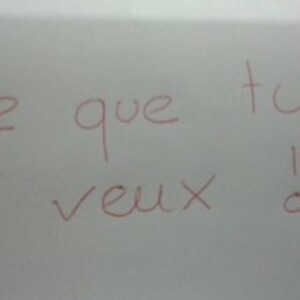 que tu
veux